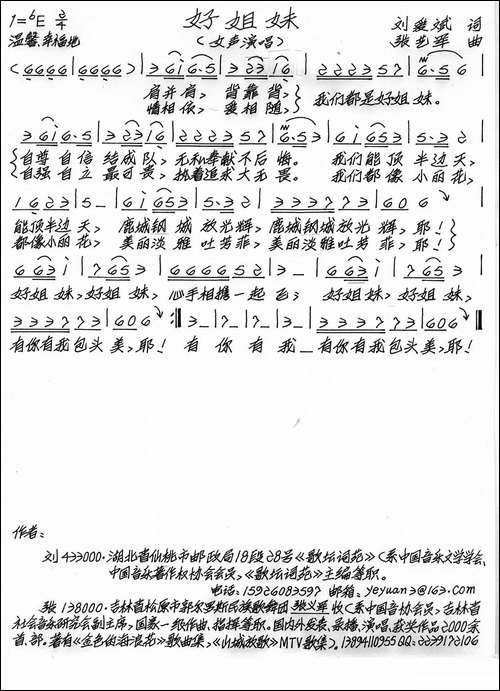 1=ᵇE 2/4 好姐妹 刘爱斌 词
温馨、幸福地 (女声演唱) 张艺军 曲
(6666 | 6666) | 3 6i 6·5 | 3 23 i6 | 2 2 2 3 5 7 | 6·5 6 |
肩并肩, 背靠背, 我们都是好姐妹。
情相依, 爱相随,
3 6i 6·5 | 3 23 i6 | 2 2 2 3 5 7 | 6·5 3 | 6i 653 | 5·3 2 |
自尊自信结成队, 无私奉献不后悔。 我们能顶半边天,
自强自立最可贵, 执着追求大无畏。 我们都像小丽花,
1 6 2 3 | 5 – | 6i 653 | 5·3 2 | 3 3 3 7 7 3 | 6 0 6 |
能顶半边天, 鹿城钢城放光辉, 鹿城钢城放光辉, 耶!
都像小丽花, 美丽淡雅吐芳菲, 美丽淡雅吐芳菲, 耶!
6 63 i | 7 65 3 | 6 6 6 6 5 2 | 3 – | 6 63 i | 7 65 3 |
好姐妹, 好姐妹, 心手相携一起飞; 好姐妹, 好姐妹,
3 3 3 7 7 3 | 6 0 6 :‖ 3 – | 7 – | 7 – | 3 – | 3 3 3 7 7 3 | 6 0 6 ‖
有你有我包头美, 耶! 有你有我– 有你有我包头美, 耶!
作者:
刘 433000·湖北省仙桃市邮政局18段28号《歌坛词苑》(系中国音乐文学学会、
中国音乐著作权协会会员,《歌坛词苑》主编等职。
电话: 15926083597 邮箱: yeyuan3@163.com
张 138000·吉林省松原市郭尔罗斯民族歌舞团 张艺军 收(系中国音协会员, 吉林省
社会音乐研究会副主席, 国家一级作曲、指挥等职。国内外发表、录播、演唱、获奖作品2000余
首、部。著有《金色的海浪花》歌曲集,《山城放歌》MTV歌集)。13894110955 QQ: